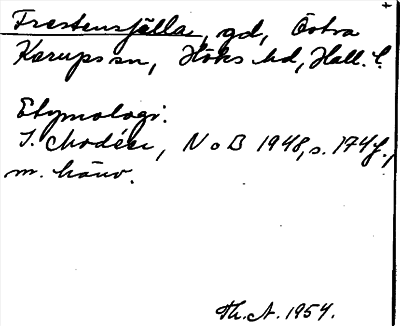 Frestensfälla, gd, Östra
Karups sn, Höks hd, Hall. l.
Etymologi:
I. Modéer, NoB 1948, s. 174f.,
m. hänv.
Th. A. 1954.